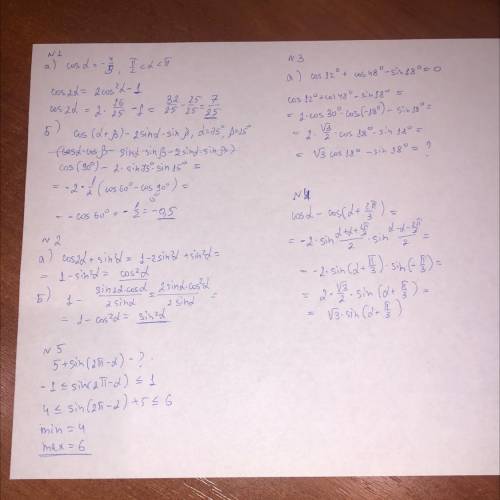 №1
а) cosα = -4/5, π/2 < α < π
cos2α = 2cos²α - 1
cos2α = 2 · 16/25 - 1 = 32/25 - 25/25 - 7/25
Б) cos(α+β) - 2sinα·sinβ, α=75° β=25°
cos(90°) - 2·sin75°·sin15° =
= -2·1/2 (cos60° - cos90°) =
= -cos60° = -1/2 = -0,5
№2
а) cos2α + sin²α = 1 - 2sin²α + sin²α =
= 1 - sin²α = cos²α
Б) 1 - sin2α·cosα / 2sinα = 2sinα·cos²α / 2sinα =
= 1 - cos²α = sin²α
№5
5 + sin(2π - α) - ?
-1 ≤ sin(2π - α) ≤ 1
4 ≤ sin(2π - α) + 5 ≤ 6
min = 4
max = 6
№3
а) cos12° + cos48° - sin18° = 0
cos12° + cos48° - sin18° =
= 2·cos30°·cos(-18°) - sin18° =
= 2·√3/2·cos18° - sin18° =
= √3 cos18° - sin18° = ?
№4
cosα - cos(α + 2π/3) =
= -2·sin (α+α+2π/3)/2 · sin (α-α-2π/3)/2 =
= -2·sin(α + π/3)·sin(-π/3) =
= 2·√3/2·sin(α + π/3) =
= √3·sin(α + π/3)